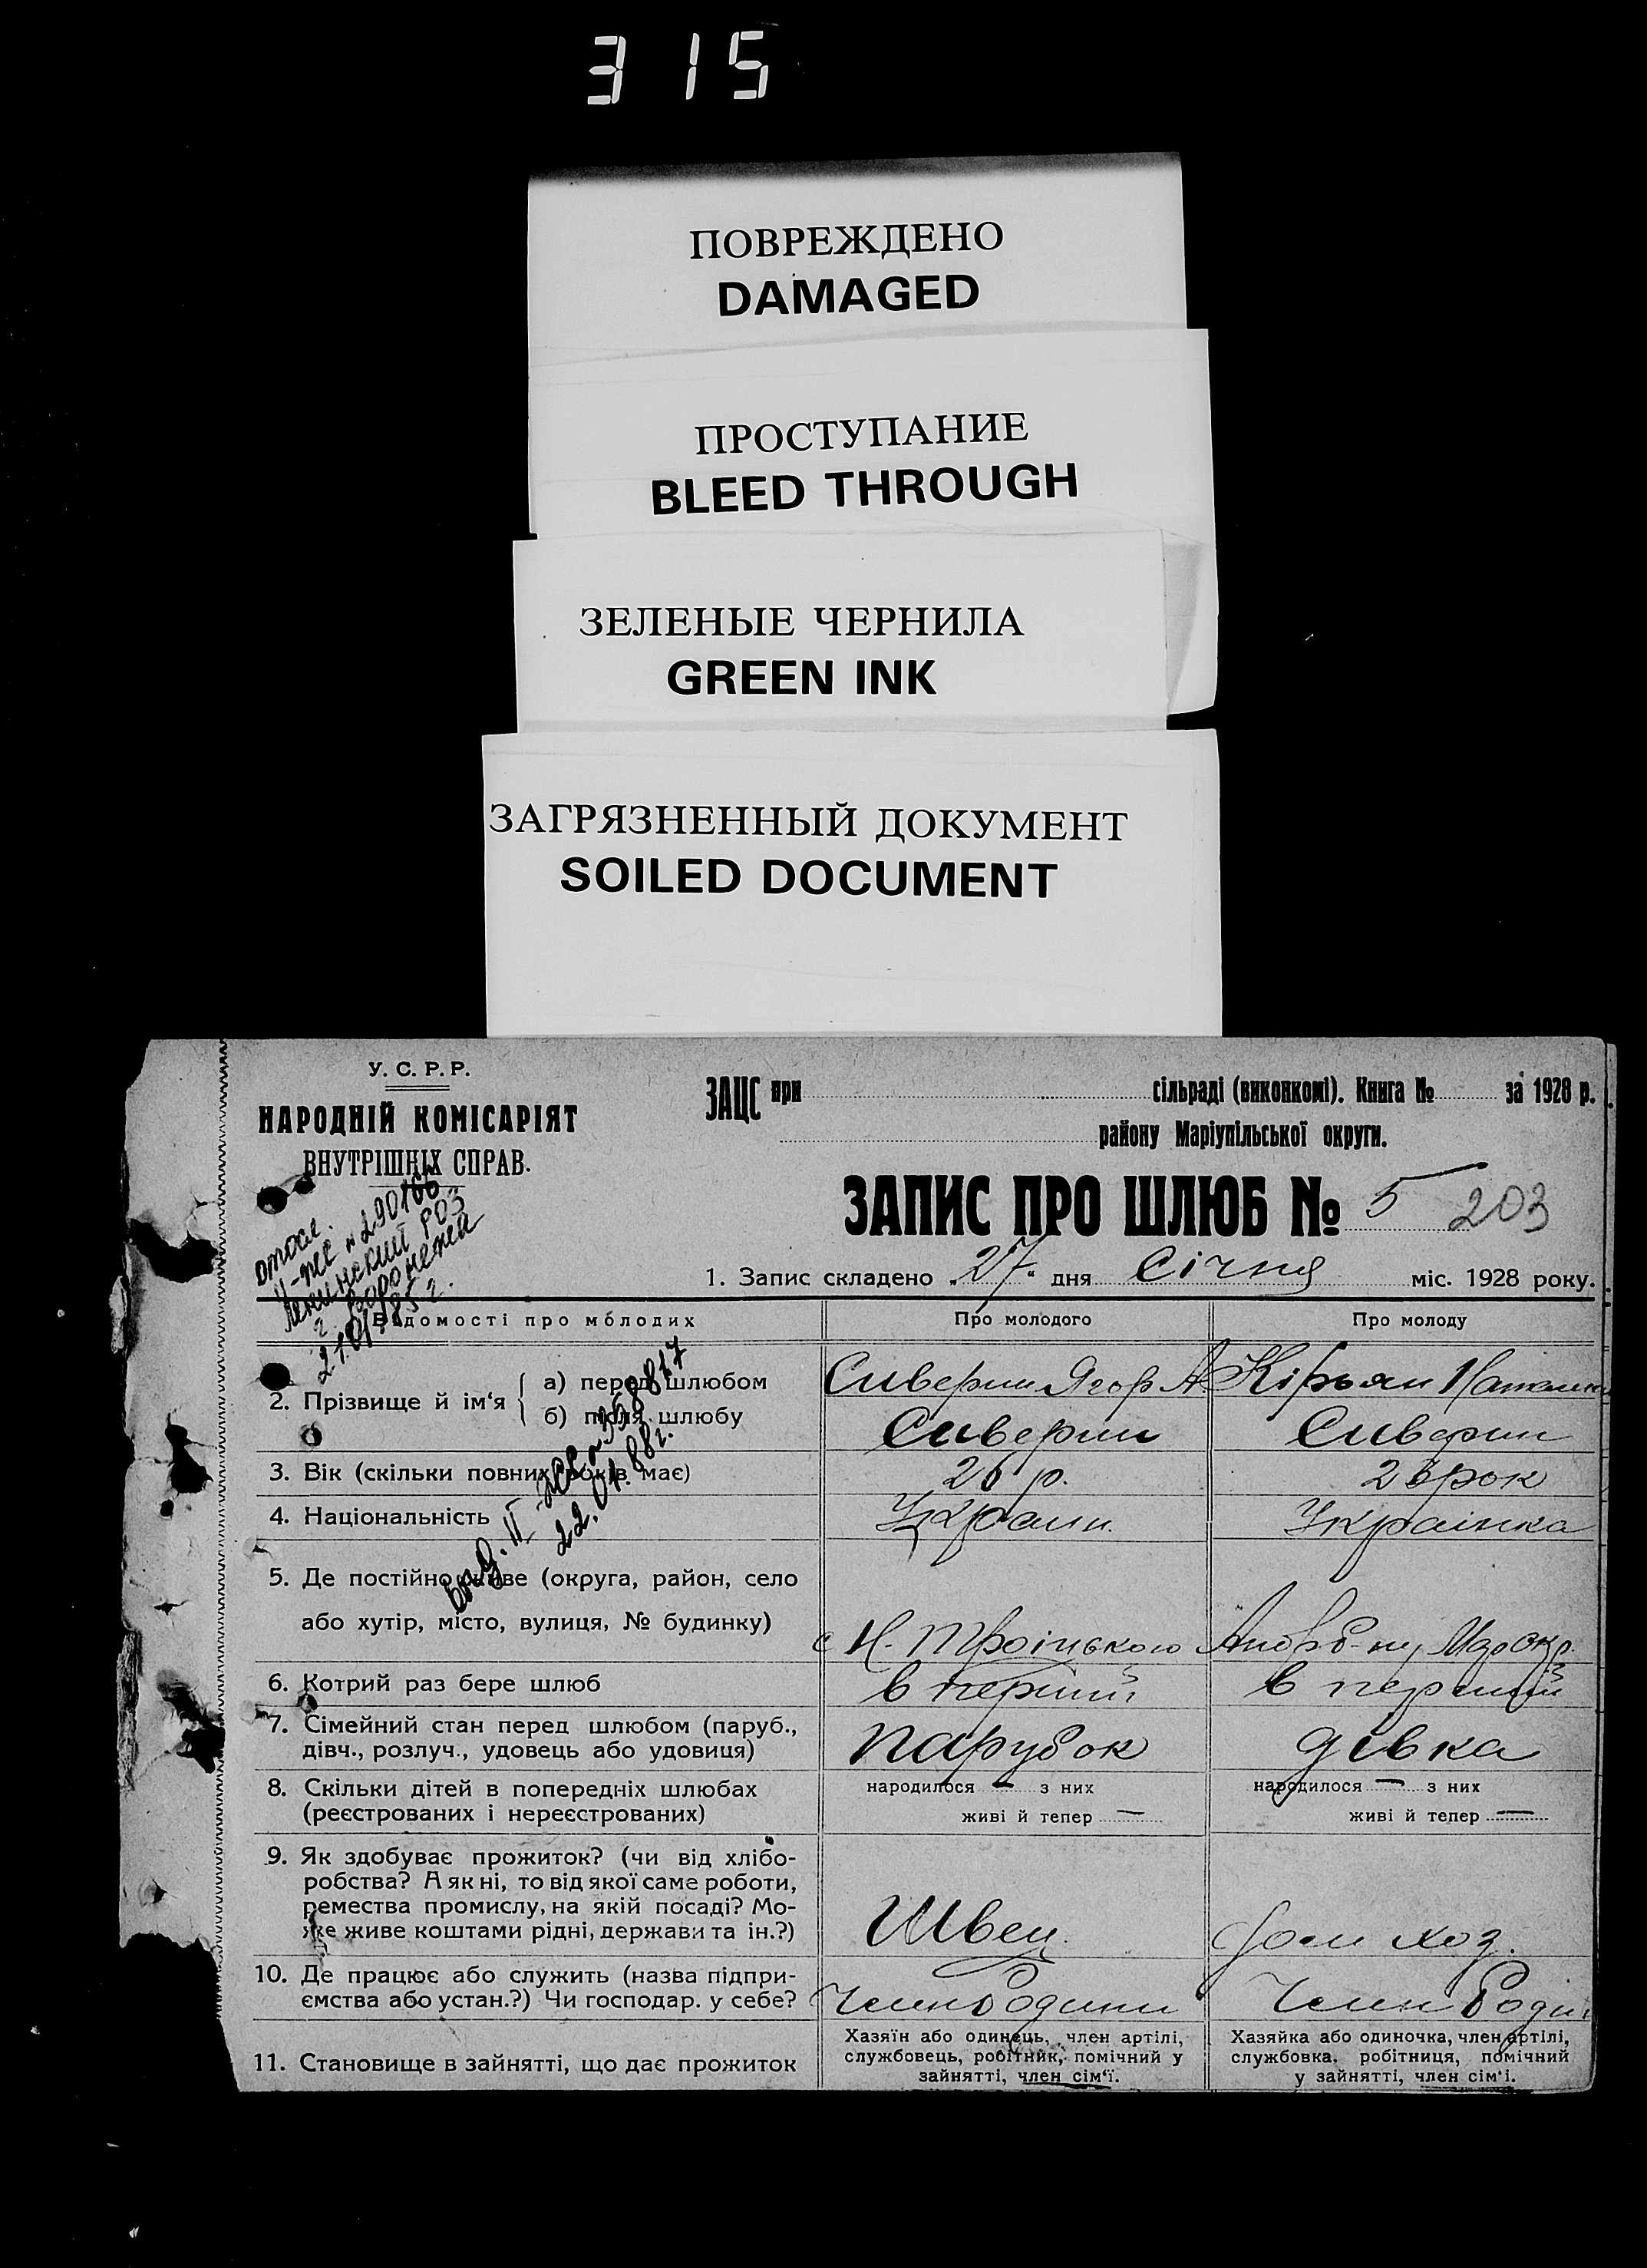 315
ПОВРЕЖДЕНО
DAMAGED
ПРОСТУПАНИЕ
BLEED THROUGH
ЗЕЛЕНЫЕ ЧЕРНИЛА
GREEN INK
ЗАГРЯЗНЕННЫЙ ДОКУМЕНТ
SOILED DOCUMENT
У. С. Р. Р.
НАРОДНІЙ КОМІСАРІЯТ
ВНУТРІШНІХ СПРАВ.
ЗАЦС при сільраді (виконкомі). Книга № за 1928 р.
району Маріупільської округи.
ЗАПИС ПРО ШЛЮБ № 5 203
1. Запис складено „27" дня Січня міс. 1928 року.
II-ЖС № 290166
Ленинский РОЗ
г. Воронежа
Відомості про молодих
Про молодого
Про молоду
2. Прізвище й ім'я
а) перед шлюбом
Сиверин Ягор А
Кірьян
б) після шлюбу
Сиверин
Сиверин
3. Вік (скільки повних років має)
26 р.
23 рок
4. Національність
Українка
выд. II
22.04.88г.
5. Де постійно живе (округа, район, село
або хутір, місто, вулиця, № будинку)
с Н. Троіцькою
6. Котрий раз бере шлюб
в перший
в перший
7. Сімейний стан перед шлюбом (паруб.,
дівч., розлуч., удовець або удовиця)
парубок
дівка
8. Скільки дітей в попередніх шлюбах
(реєстрованих і нереєстрованих)
народилося — з них
живі й тепер —
народилося — з них
живі й тепер —
9. Як здобуває прожиток? (чи від хлібо-
робства? А як ні, то від якої саме роботи,
ремества промислу, на якій посаді? Мо-
же живе коштами рідні, держави та ін.?)
Швец
дом хоз.
10. Де працює або служить (назва підпри-
ємства або устан.?) Чи господар. у себе?
Член Родини
Член Родин
11. Становище в зайнятті, що дає прожиток
Хазяїн або одинець, член артілі,
службовець, робітник, помічний у
зайнятті, член сім'ї.
Хазяйка або одиночка, член артілі,
службовка, робітниця, помічний
у зайнятті, член сім'ї.